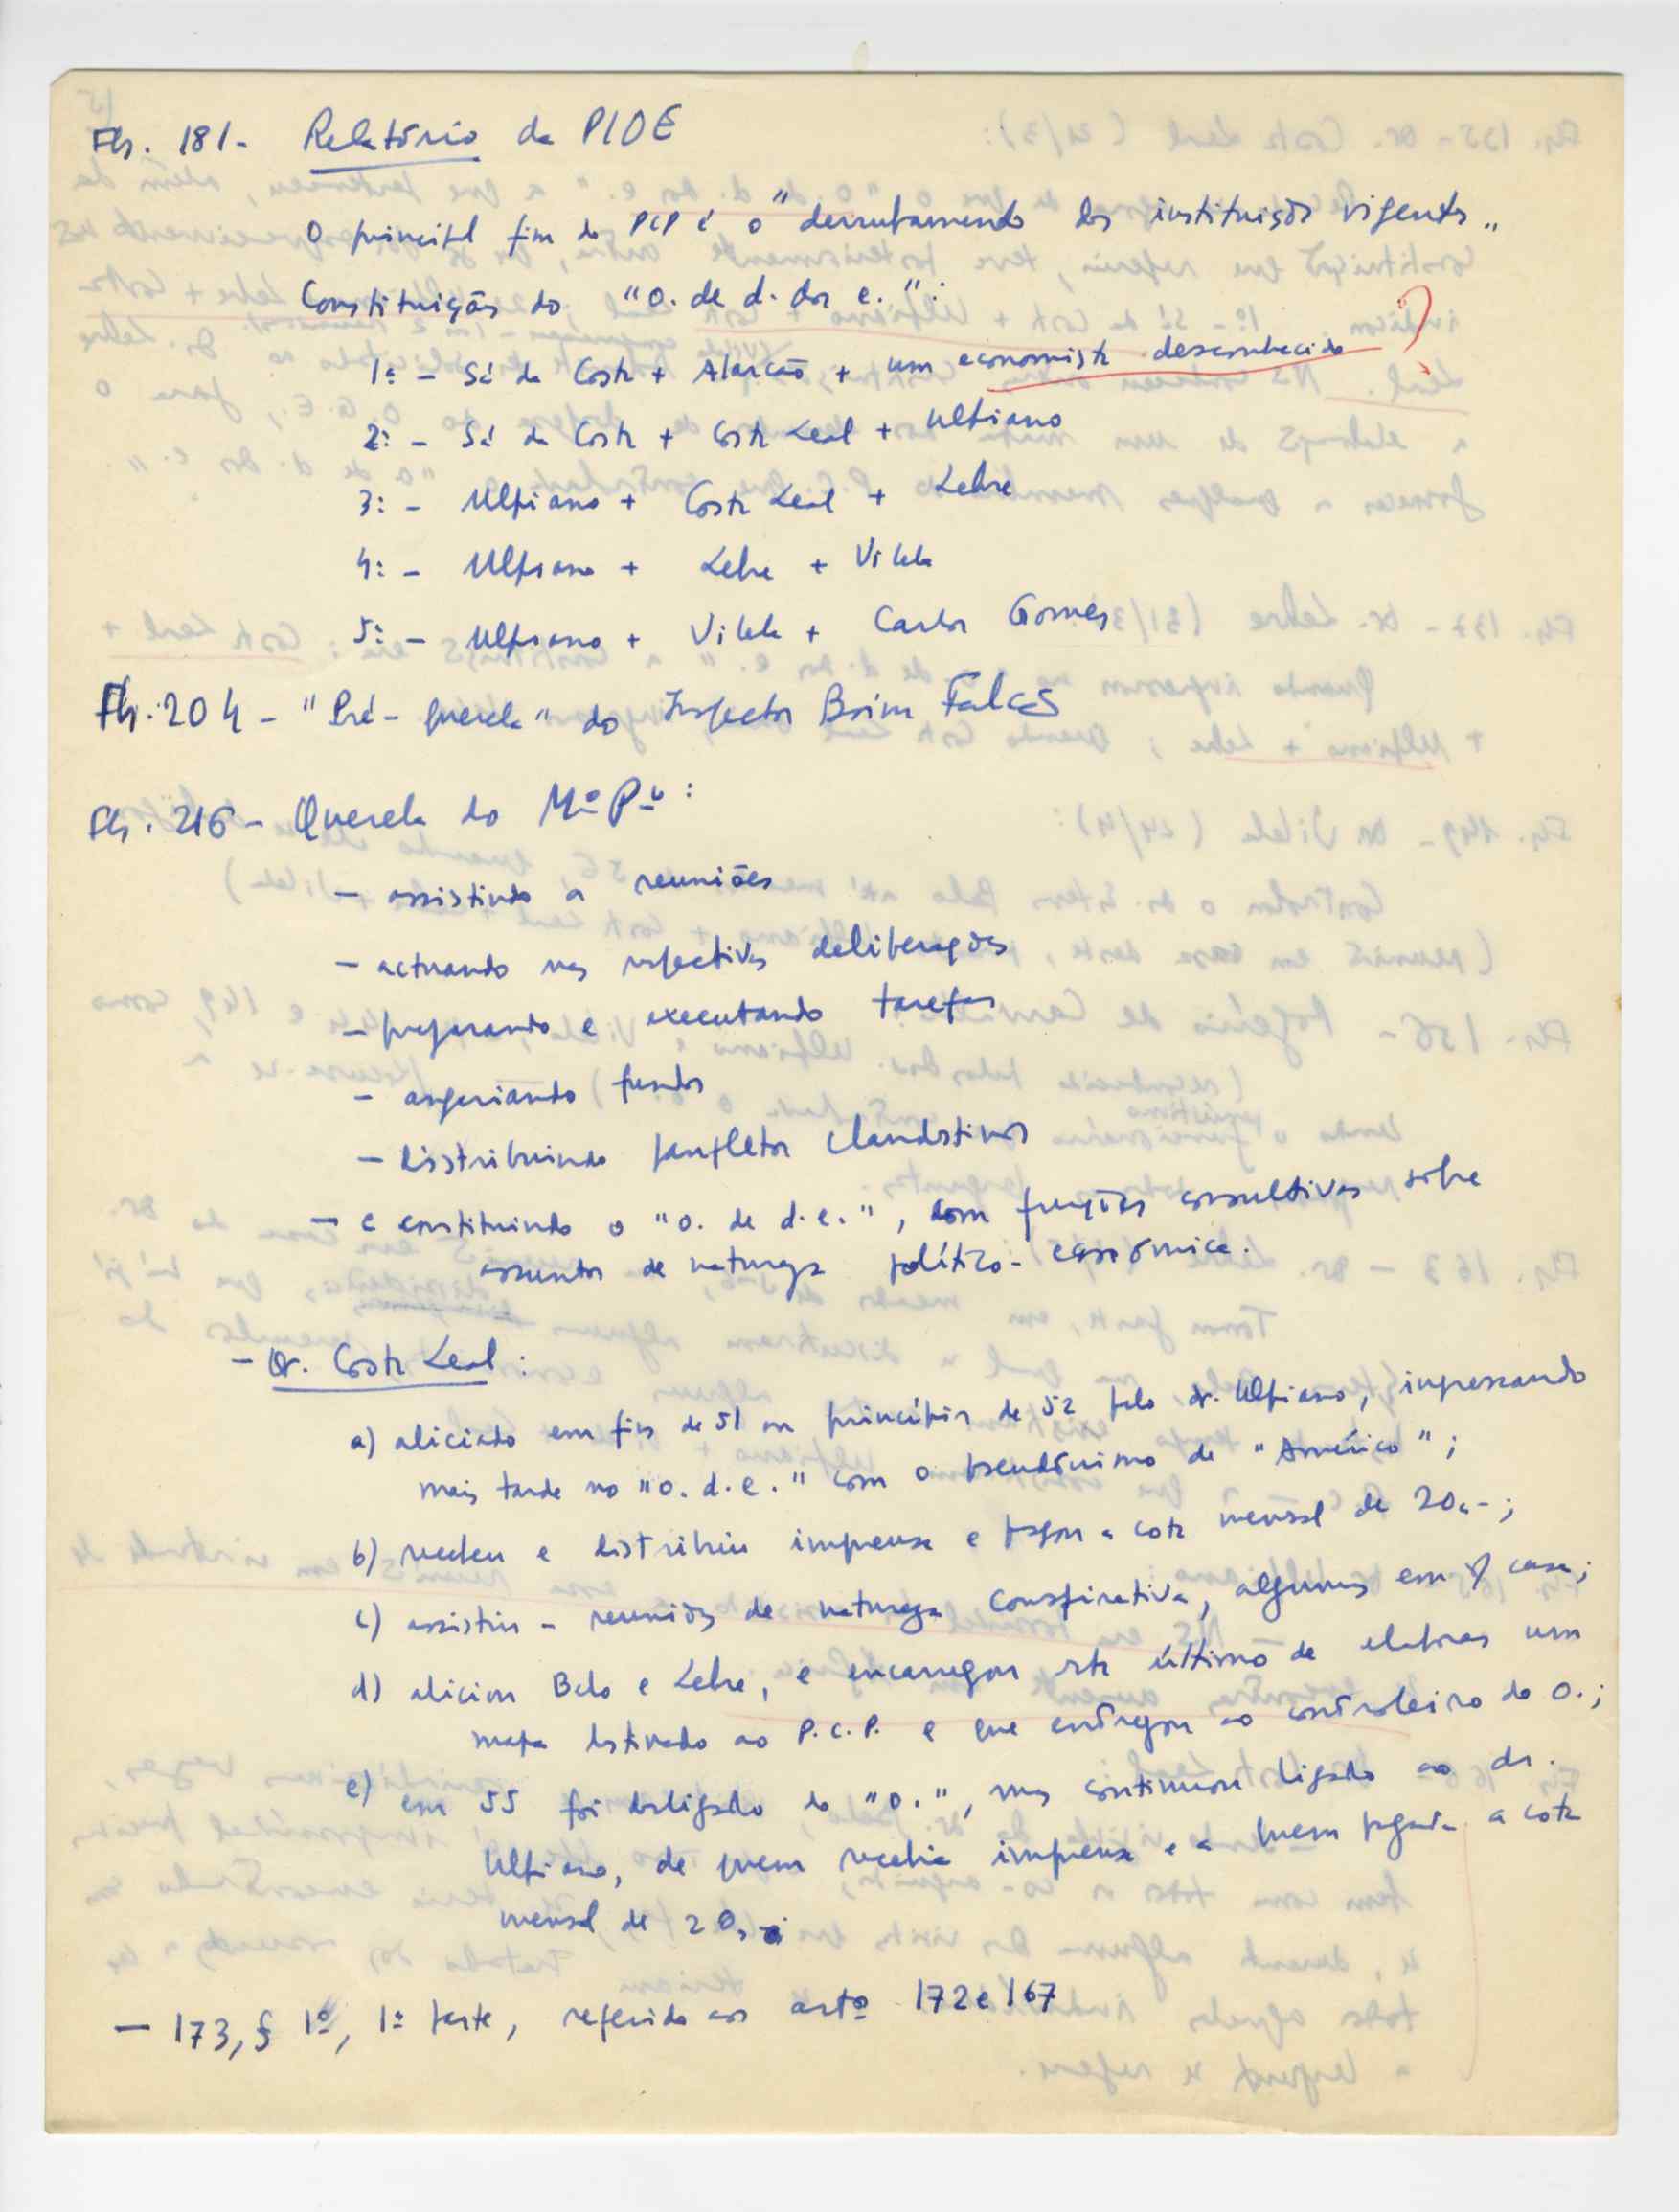 Fls. 181 - Relatório da PIDE
O principal fim do PCP é o "derrubamento das instituições vigentes"
Constituição do "o. de d. dos e.":
1º - Sá da Costa + Alarcão + um economista desconhecido ?
2º - Sá da Costa + Costa Leal + Ulpiano
3º - Ulpiano + Costa Leal + Lebre
4º - Ulpiano + Lebre + Vilela
5º - Ulpiano + Vilela + Carlos Gomes
Fls. 204 - "Pré-querela" do Inspector Boim Falcão
Fls. 216 - Querela do Mº Pº:
- assistindo a reuniões
- actuando nas respectivas deliberações
- preparando e executando tarefas
- angariando fundos
- distribuindo panfletos clandestinos
- e constituindo o "o. de d. e.", com funções consultivas sobre
assuntos de natureza político-económica.
- Dr. Costa Leal:
a) aliciado em fins de 51 ou princípios de 52 pelo dr. Ulpiano, ingressando
mais tarde no "o. d. e." com o pseudónimo de "Américo";
b) recebeu e distribuiu imprensa e pagou a cota mensal de 20$-;
c) assistiu a reuniões de natureza conspirativa, algumas em s/ casa;
d) aliciou Belo e Lebre, e encarregou este último de elaborar um
mapa destinado ao P.C.P. e que entregou ao controleiro do o.;
e) em 55 foi desligado do "o.", mas continuou ligado ao dr.
Ulpiano, de quem recebia imprensa e a quem pagava a cota
mensal de 20$-
- 173, § 1º, 1ª parte, referido aos artº 172 e 167